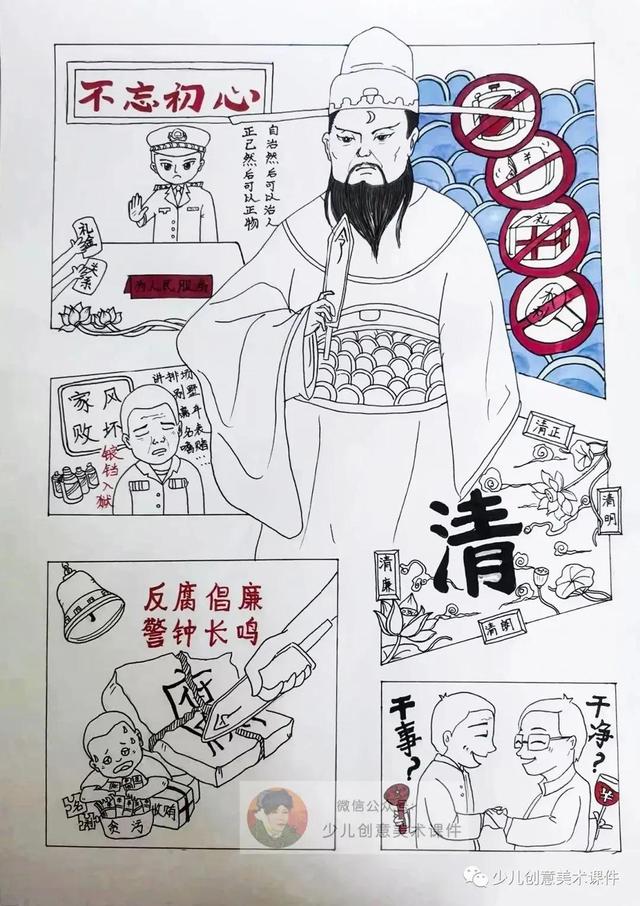 不忘初心
自治然后可以治人
正己然后可以正物
礼金
关系
为人民服务
礼
家风
败坏
锒铛入狱
讲排场
别墅
豪车
名表
嗜赌
……
清正
清明
清
清廉
清朗
反腐倡廉
警钟长鸣
腐
贪污
收贿
干事?
干净?
微信公众号
少儿创意美术课件
少儿创意美术课件